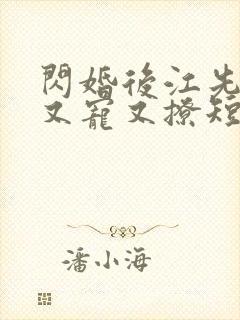 閃婚後江先
又寵又撩短
潘小海